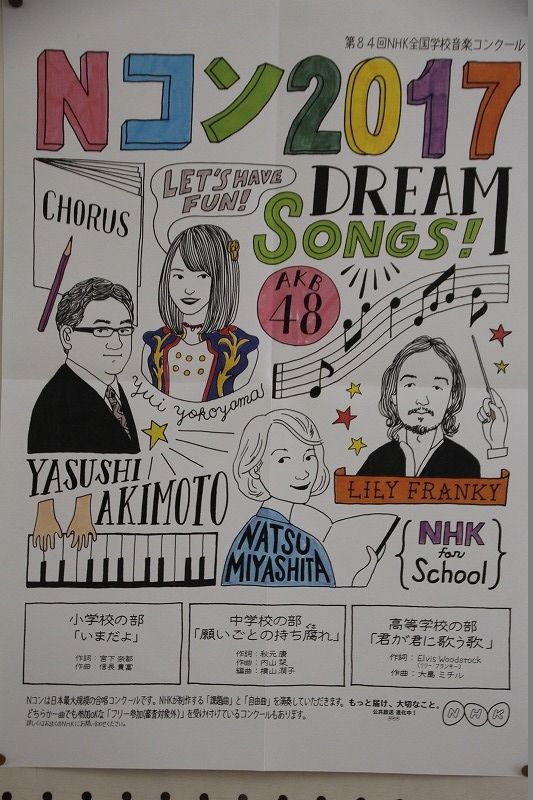 第84回NHK全国学校音楽コンクール
Nコン2017
CHORUS
LET'S HAVE
FUN!
DREAM
SONGS!
AKB
48
yui yokoyama
YASUSHI
AKIMOTO
LILY FRANKY
NATSU
MIYASHITA
NHK
for
School
小学校の部
「いまだよ」
作詞：宮下 奈都
作曲：信長 貴富
中学校の部
「願いごとの持ち腐れ」
作詞：秋元 康
作曲：内山 栞
編曲：横山 潤子
高等学校の部
「君が君に歌う歌」
作詞：Elvis Woodstock
(リリー・フランキー)
作曲：大島 ミチル
Nコンは日本最大規模の合唱コンクールです。NHKが制作する「課題曲」と「自由曲」を演奏していただきます。
どちらか一曲でも参加OKな「フリー参加(審査対象外)」を受け付けているコンクールもあります。
詳しくはお近くのNHKにお問い合わせください。
もっと届け、大切なこと。
公共放送 進化中！
NHK